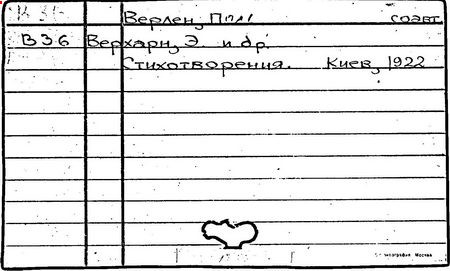 Верлен, Поль соавт.
В36 Верхарн, Э. и др.
Стихотворения. Киев, 1922
типография Москва